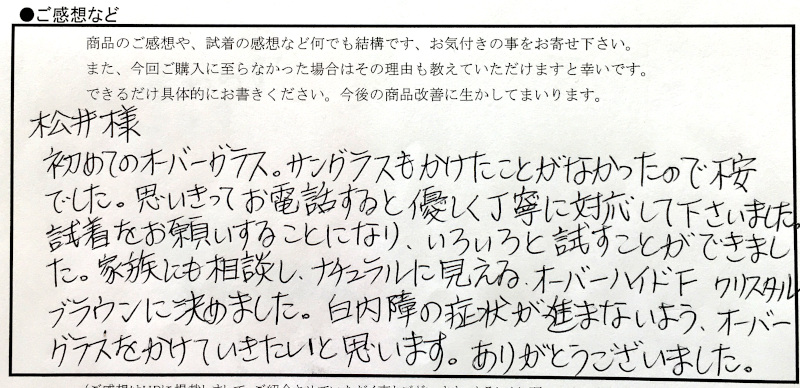 ●ご感想など
商品のご感想や、試着の感想など何でも結構です、お気付きの事をお寄せ下さい。
また、今回ご購入に至らなかった場合はその理由も教えていただけますと幸いです。
できるだけ具体的にお書きください。今後の商品改善に生かしてまいります。
松井様
初めてのオーバーグラス。サングラスもかけたことがなかったので不安
でした。思いきってお電話すると優しく丁寧に対応して下さいました。
試着をお願いすることになり、いろいろと試すことができまし
た。家族にも相談し、ナチュラルに見える、オーバーハイドF クリスタル
ブラウンに決めました。白内障の症状が進まないよう、オーバー
グラスをかけていきたいと思います。ありがとうございました。